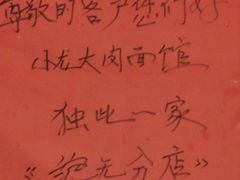 尊敬的客户您们好
小龙大肉面馆
独此一家
《论无分店》